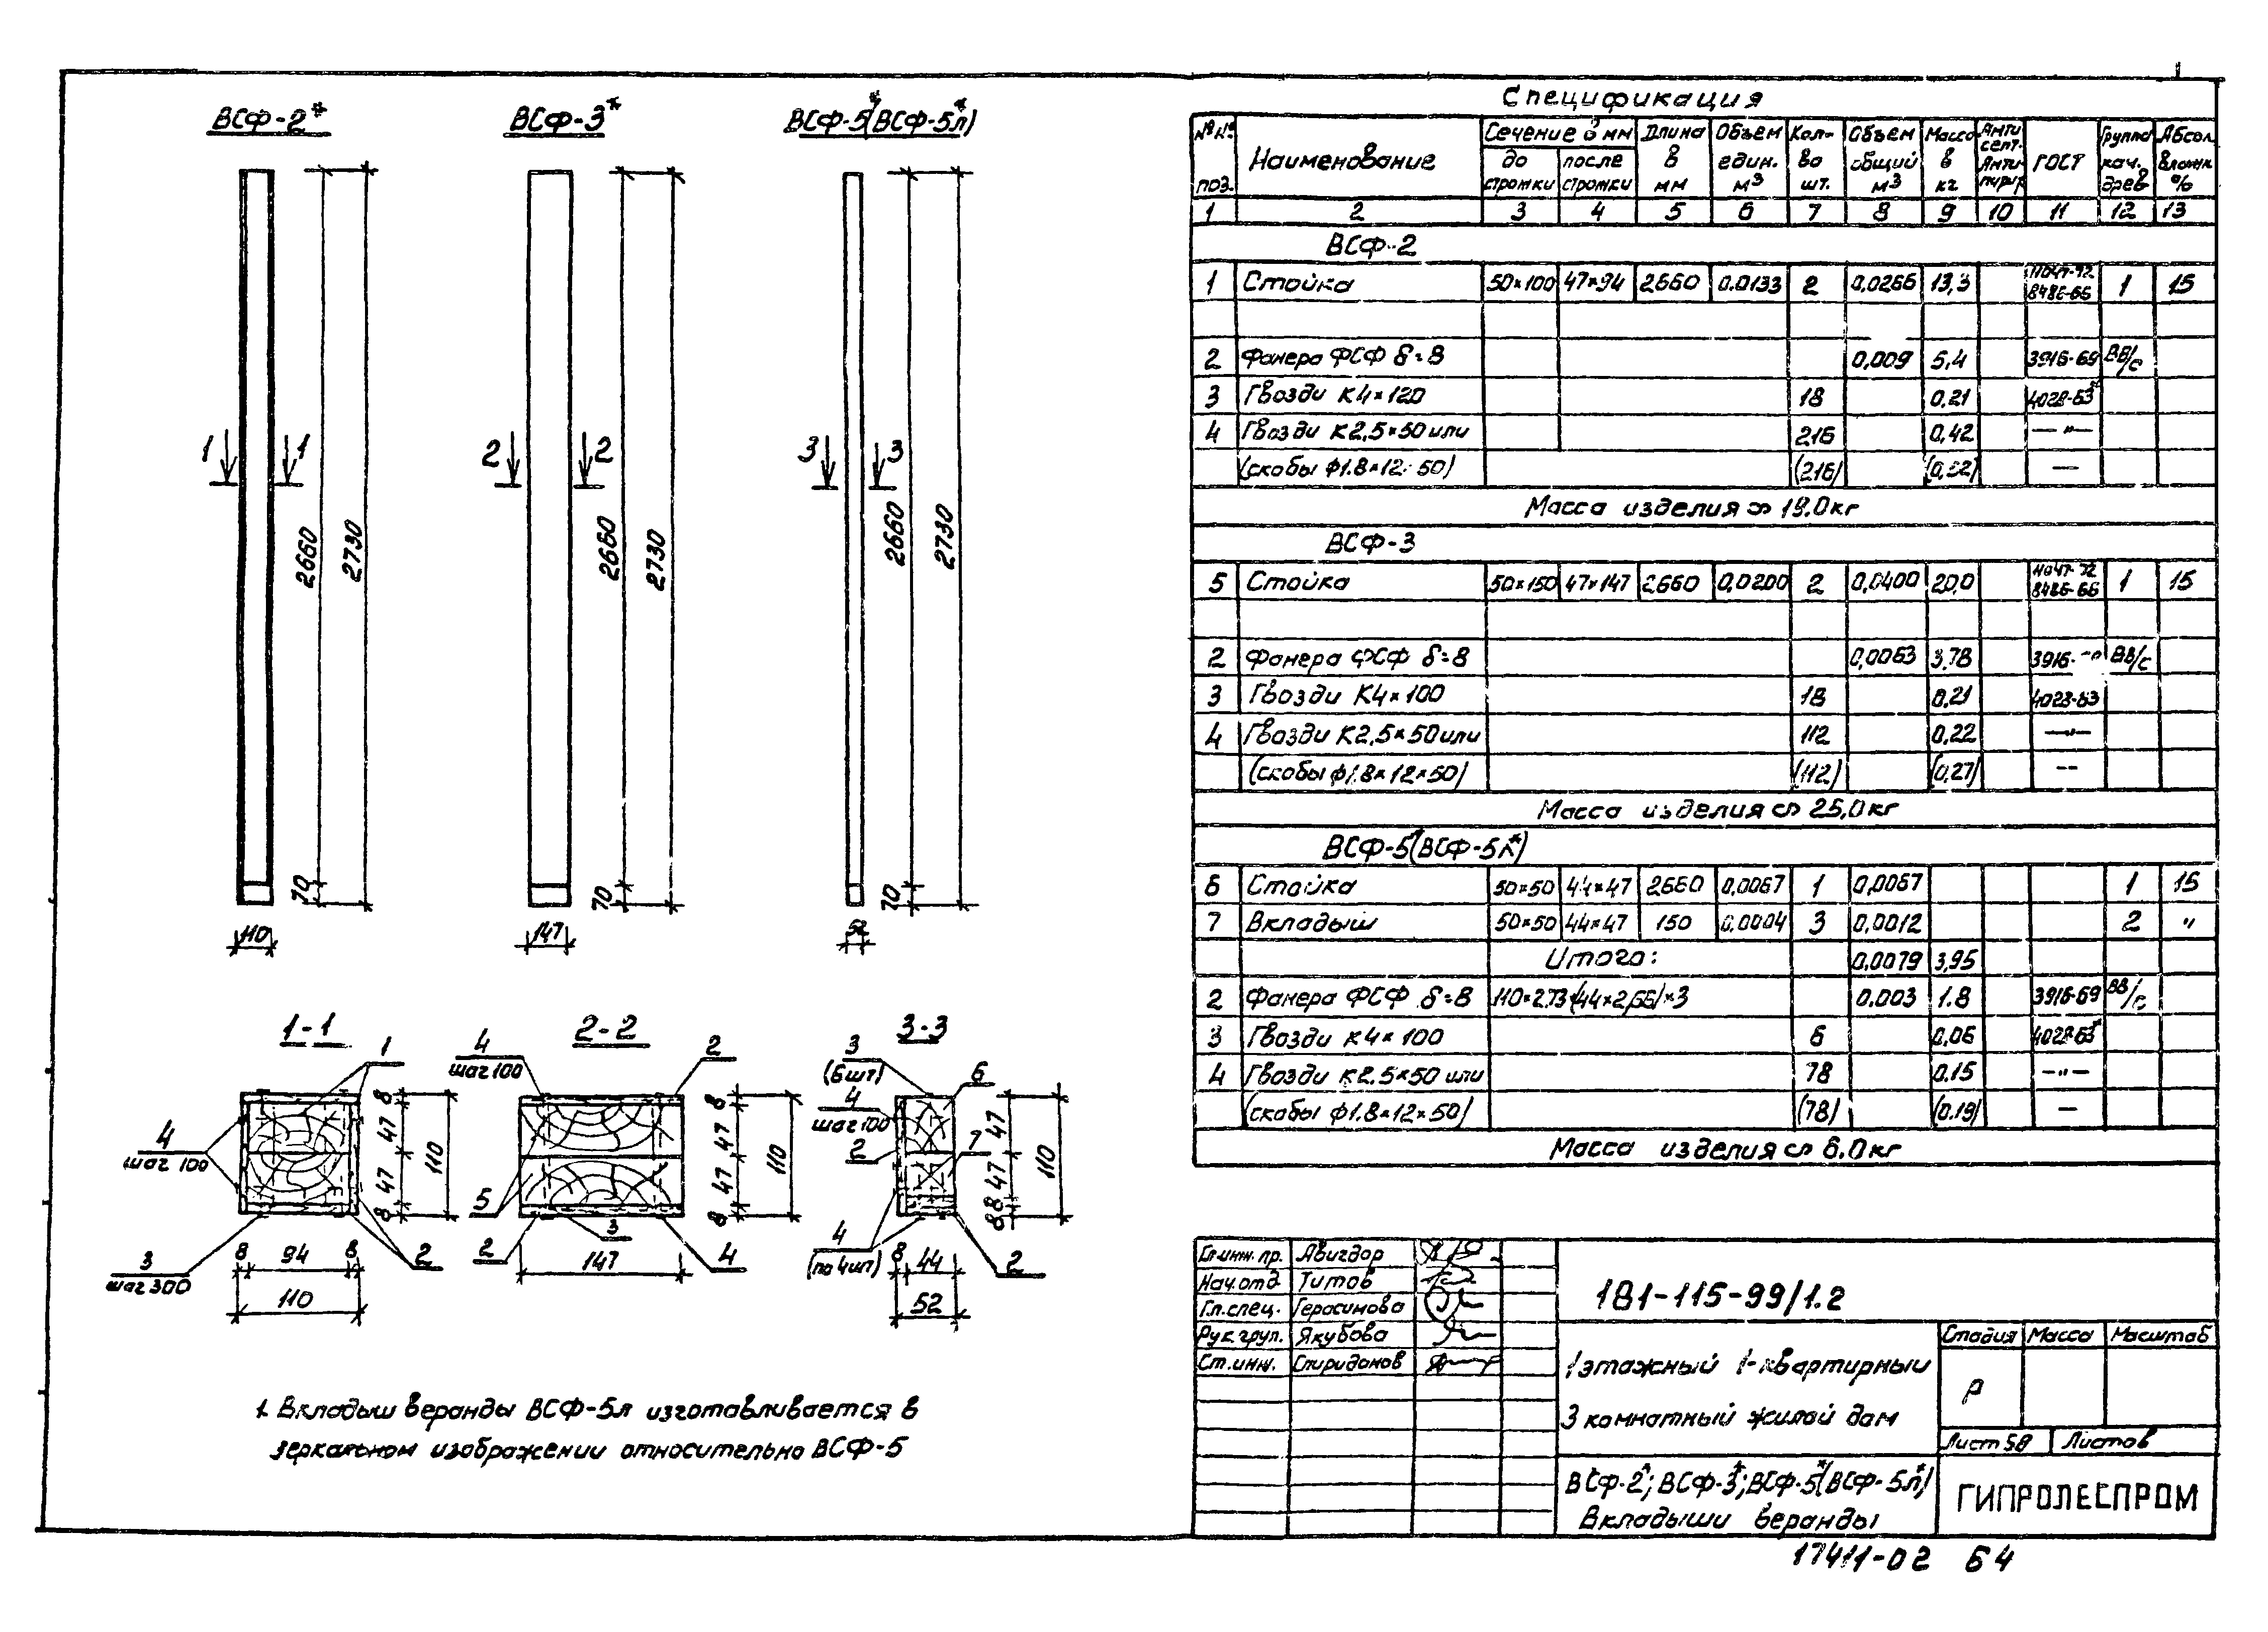 ВСФ-2*
ВСФ-3*
ВСФ-5*(ВСФ-5л*)
1 1
2 2
3 3
2660 2730
2660 2730
2660 2730
70 70 70
110 147 52
1-1
2-2
3-3
1
4
шаг 100
3
шаг 300
2
8 47 47 8
110
8 94 8
110
4
шаг 100
2
5
2 3 4
8 47 47 8
110
147
3
(6шт)
4
шаг 100
2
6
7
4
(по 4шт)
2
47 47 8 8
110
8 44
52
1. Вкладыш веранды ВСФ-5л изготавливается в
зеркальном изображении относительно ВСФ-5
Спецификация
№№ поз. Наименование Сечение в мм до строжки после строжки Длина в мм Объем един. м³ Кол-во шт. Объем общий м³ Масса в кг Антисепт. Антипирир ГОСТ Группа кач. древ Абсол. влажн. %
1 2 3 4 5 6 7 8 9 10 11 12 13
ВСФ-2
1 Стойка 50×100 47×94 2660 0.0133 2 0,0266 13,3 11047-72 8486-66 1 15
2 Фанера ФСФ δ=8 0,009 5,4 3916-69 ВВ/С
3 Гвозди К4×120 18 0,21 4028-63*
4 Гвозди К2,5×50 или 216 0,42 —"—
(скобы ф1.8×12×50) (216) —
Масса изделия ∽ 19.0кг
ВСФ-3
5 Стойка 50×150 47×147 2660 0,0200 2 0,0400 20,0 11047-72 8486-66 1 15
2 Фанера ФСФ δ=8 0,0063 3,78 3916- ВВ/С
3 Гвозди К4×100 18 0,21 4028-63
4 Гвозди К2,5×50 или 112 0,22 —"—
(скобы ф1.8×12×50) (112) (0,27) —
Масса изделия ∽ 25,0кг
ВСФ-5*(ВСФ-5л*)
6 Стойка 50×50 44×47 2660 0,0067 1 0,0067 1 15
7 Вкладыш 50×50 44×47 150 0,0004 3 0,0012 2 "
Итого: 0,0079 3,95
2 Фанера ФСФ δ=8 110×2.73+(44×2,66)×3 0.003 1.8 3916-69 ВВ/С
3 Гвозди К4×100 6 0,06 4028-63*
4 Гвозди К2.5×50 или 78 0.15 —"—
(скобы ф1.8×12×50) (78) (0.19) —
Масса изделия ∽ 6.0кг
Гл.инж.пр. Авигдор
Нач.отд Титов
Гл.спец. Герасимова
Рук.груп. Якубова
Ст.инж. Спиридонов
181-115-99/1.2
1этажный 1-квартирный
3 комнатный жилой дом
Стадия Масса Масштаб
Р
Лист 58 Листов
ВСФ-2*; ВСФ-3*; ВСФ-5*(ВСФ-5л*)
Вкладыши веранды
ГИПРОЛЕСПРОМ
17411-02 64